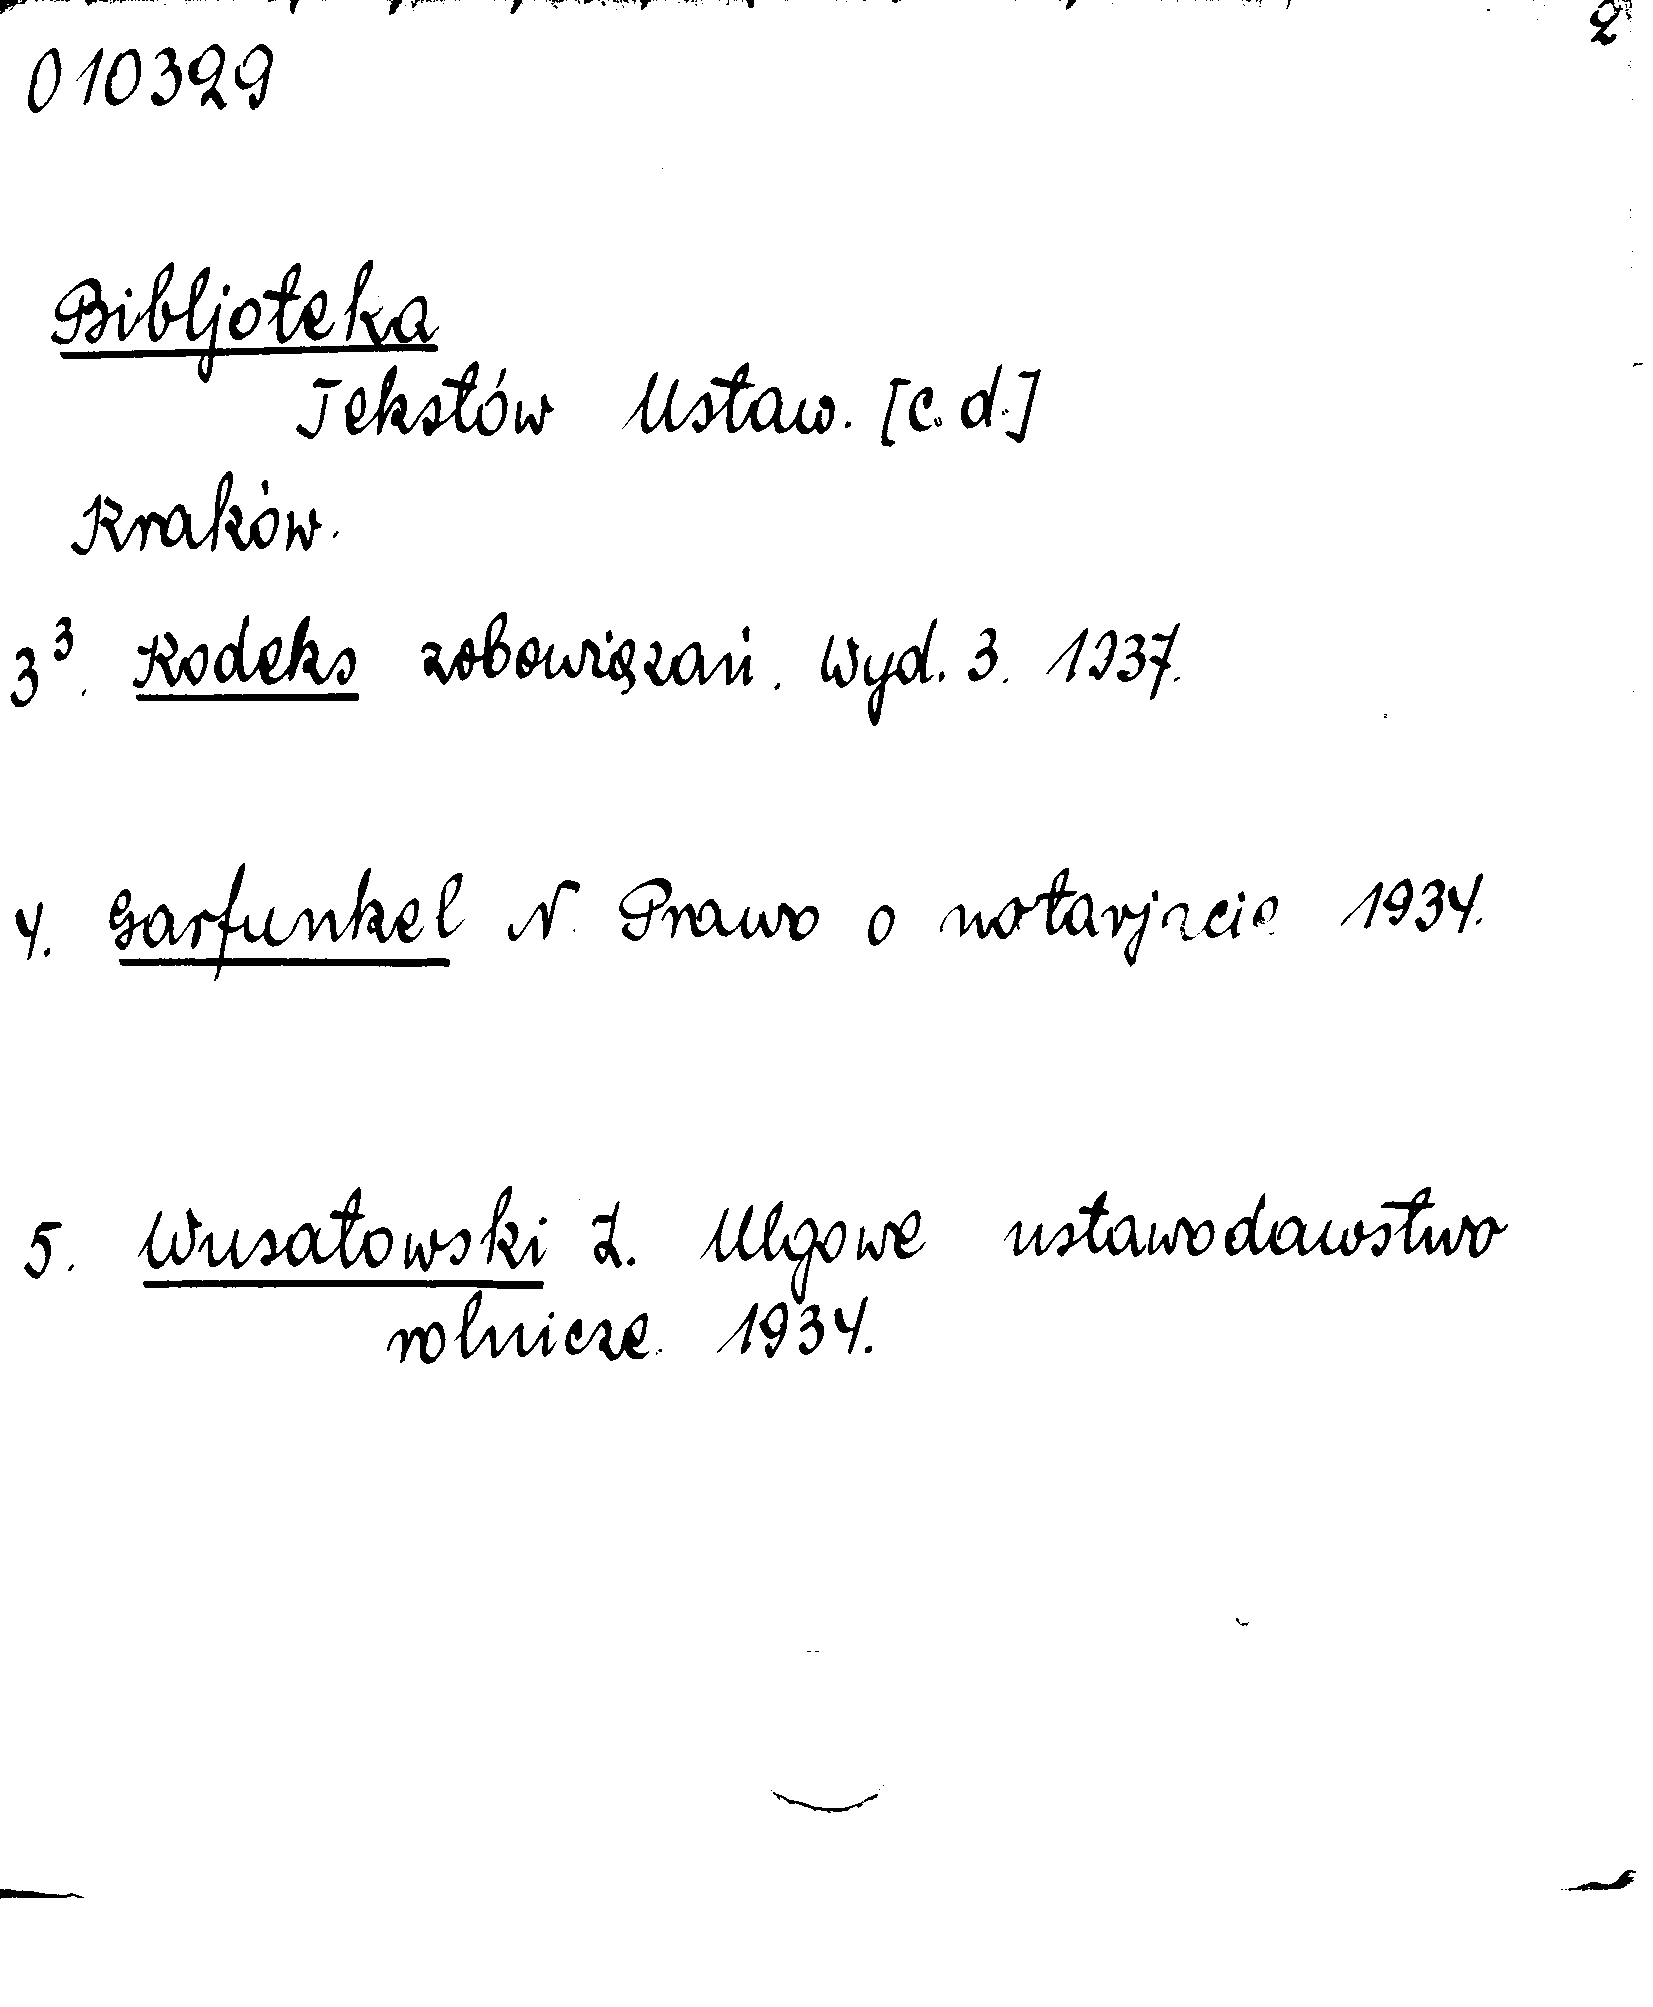 2
010329
Bibljoteka
Tekstów Ustaw. [c.d.]
Kraków.
3³. Kodeks zobowiązań. Wyd. 3. 1937.
4. Garfunkel N. Prawo o notarjacie 1934.
5. Wusatowski Z. Ulgowe ustawodawstwo
rolnicze. 1934.